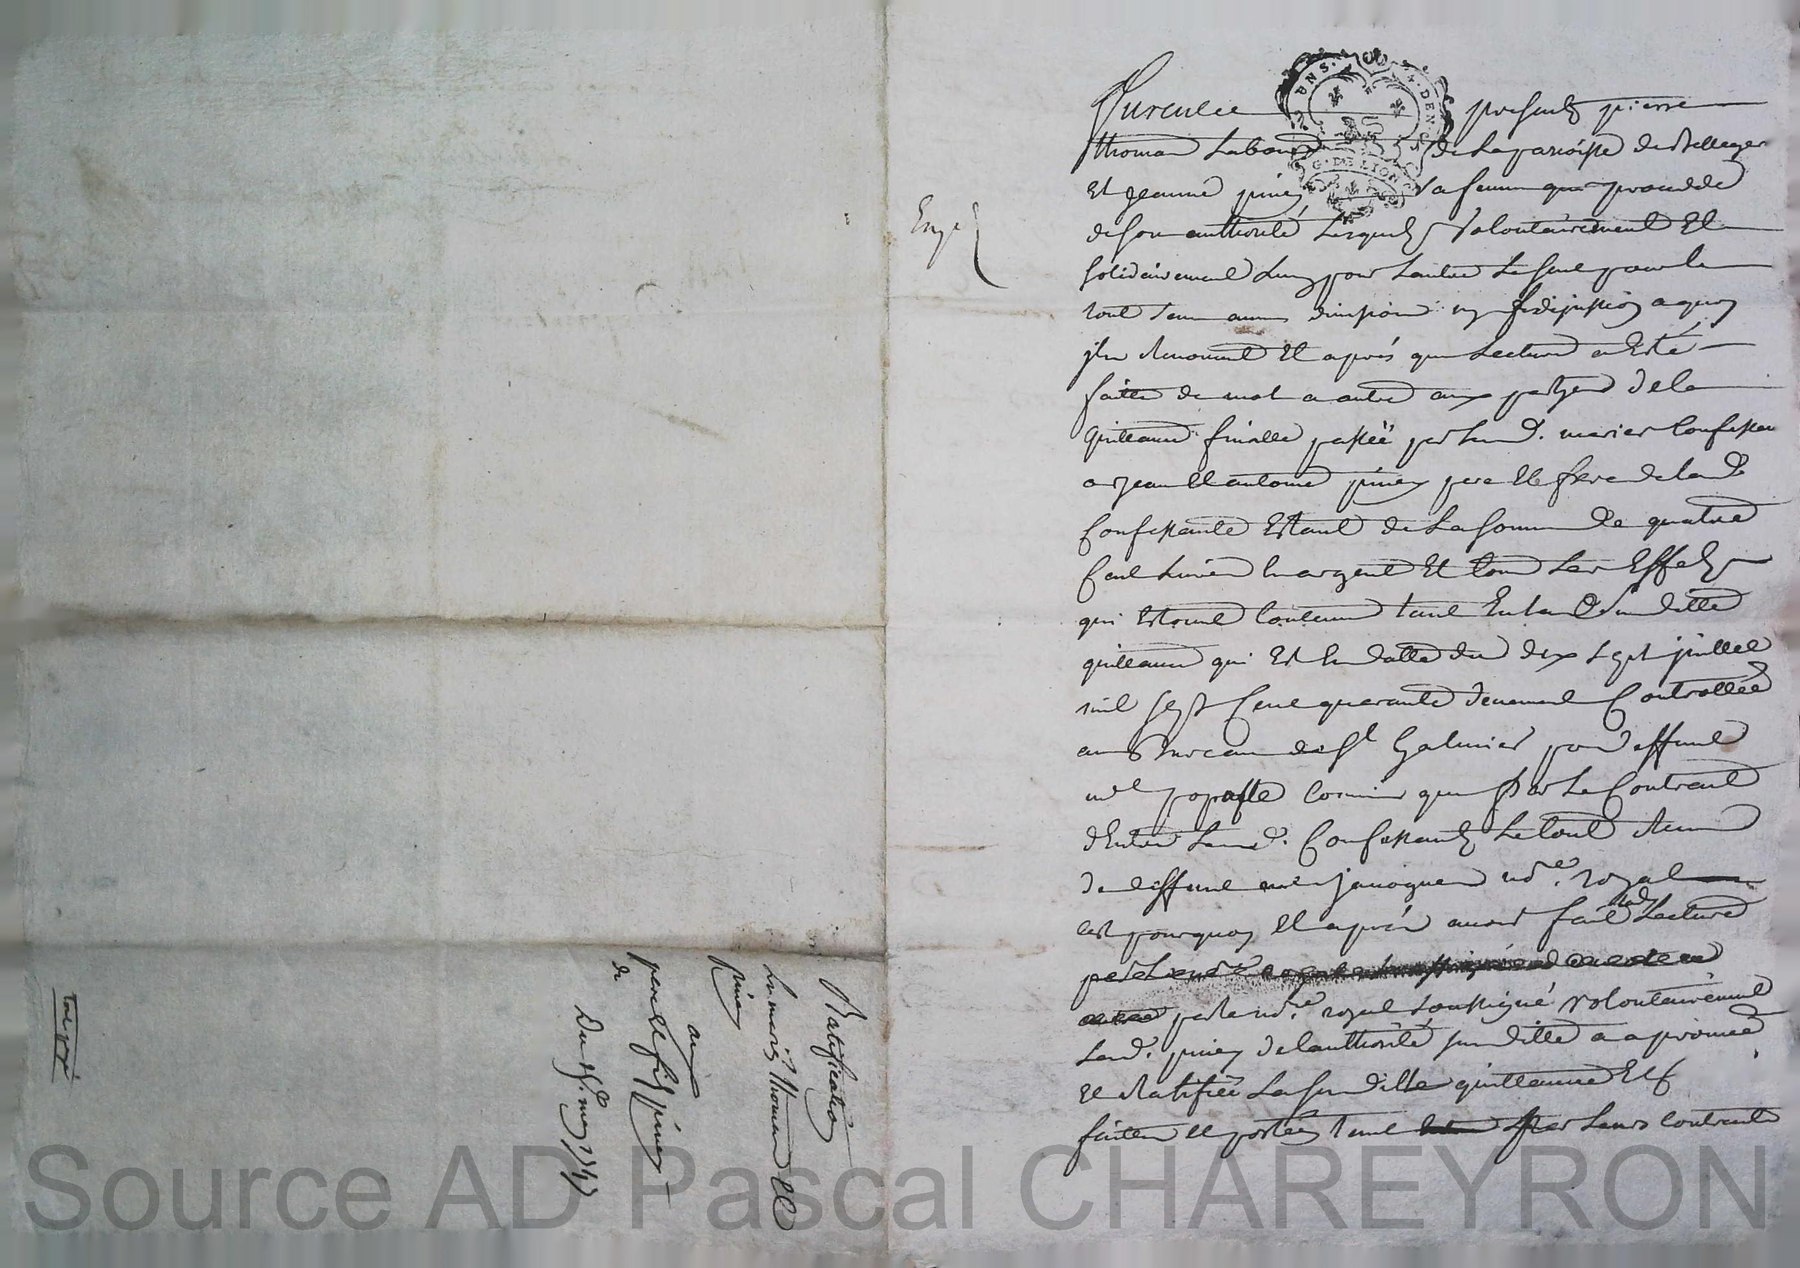 Furent présents pierre
thomas de la paroisse de Bellegar
Et jeanne piney sa femme qui procedde
de son authorité Lesquels Volontairement Et
solidairement Lun pour Lautre Le seul pour le
tout sans division ny fidéjussion a quoy
ils Renoncent Et après que Lecture a Esté
faitte de mot a autre aux partyes de la
quittance finalle passée par les d. mariés Confessan
a jean Et antoine piney pere Et frere de la de
Confessante Estant de La somme de quatre
Cent Livres En argent Et tous Les Effets
qui Estoient Contenus tant En la susditte
quittance qui Est En datte du dix sept juillet
mil sept Cent quarante deuement Controllée
au Bureau de St Galmier
que par Le Contract
d'Entre Les d. Confessants Le tout Receu
janoque nore. royal
cest pourquoy Et après avoir fait Lecture
par le nore. royal soussigné Volontairement
La d. piney de Lauthorité susditte a aprouvé
Et Ratiffié La susditte quittance Et
faitte Et portée tant par Leurs contract
Ratification
Les mariés thomas Et
piney
aux
pere Et fils piney
de
Du
2 SOUS. 4. DEN.
G. DE LYON
Source AD Pascal CHAREYRON